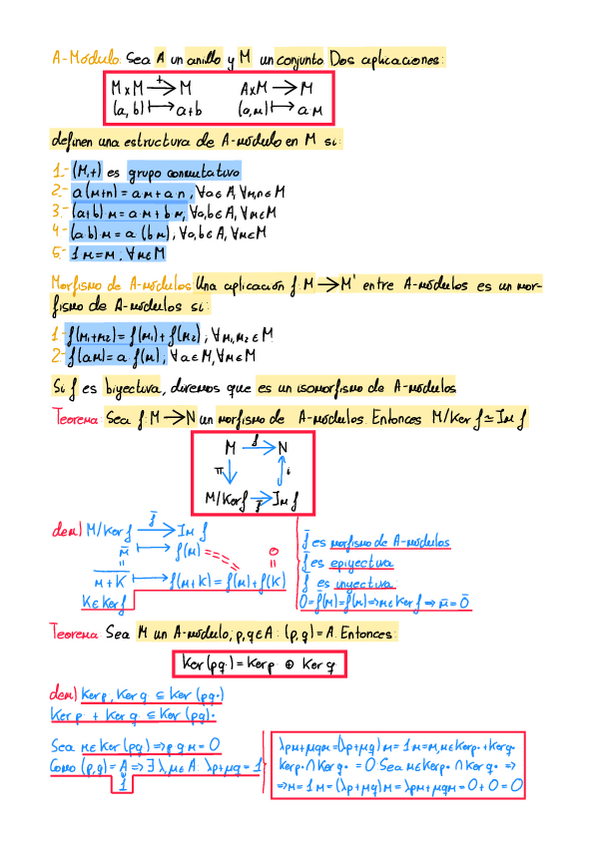 A-Módulo. Sea A un anillo y M un conjunto Dos aplicaciones:
M×M →+ M A×M → M
(a, b) ↦ a+b (a,m) ↦ a·m
definen una estructura de A-módulo en M si:
1.- (M,+) es grupo conmutativo
2.- a(m+n) = a m + a n, ∀a∈A, ∀m,n∈M
3.- (a+b) m = a m + b m, ∀a,b∈A, ∀m∈M
4.- (a b) m = a (b m), ∀a,b∈A, ∀m∈M
5.- 1 m = m, ∀m∈M
Morfismo de A-módulos: Una aplicación f: M → M' entre A-módulos es un mor-
fismo de A-módulos si:
1.- f(m₁+m₂) = f(m₁) + f(m₂), ∀m₁,m₂∈M
2.- f(am) = a f(m), ∀a∈M, ∀m∈M
Si f es biyectiva, diremos que es un isomorfismo de A-módulos
Teorema Sea f: M → N un morfismo de A-módulos. Entonces M/Ker f ≃ Im f
M →f N
π ↓ ↑ i
M/Ker f →f̄ Im f
dem) M/Ker f →f̄ Im f
m̄ ↦ f(m) 0
= =
m+K ↦ f(m+K) = f(m)+f(K)
K∈Ker f
f̄ es morfismo de A-módulos
f̄ es epiyectiva
f̄ es inyectiva
0 = f̄(m̄) = f(m) ⇒ m∈Ker f ⇒ m̄ = 0̄
Teorema Sea M un A-módulo; p,q∈A: (p,q) = A. Entonces:
Ker(pq·) = Ker p· ⊕ Ker q·
dem) Ker p·, Ker q· ⊆ Ker (pq·)
Ker p· + Ker q· ⊆ Ker (pq)·
Sea m∈Ker(pq) ⇒ p q m = 0
Como (p,q) = A ⇒ ∃ λ,μ∈A: λp+μq = 1
1
λpm+μqm = (λp+μq) m = 1 m = m, m∈Ker p·+Ker q·
Ker p· ∩ Ker q· = 0 Sea m∈Ker p· ∩ Ker q· ⇒
⇒ m = 1 m = (λp+μq) m = λpm+μqm = 0 + 0 = 0